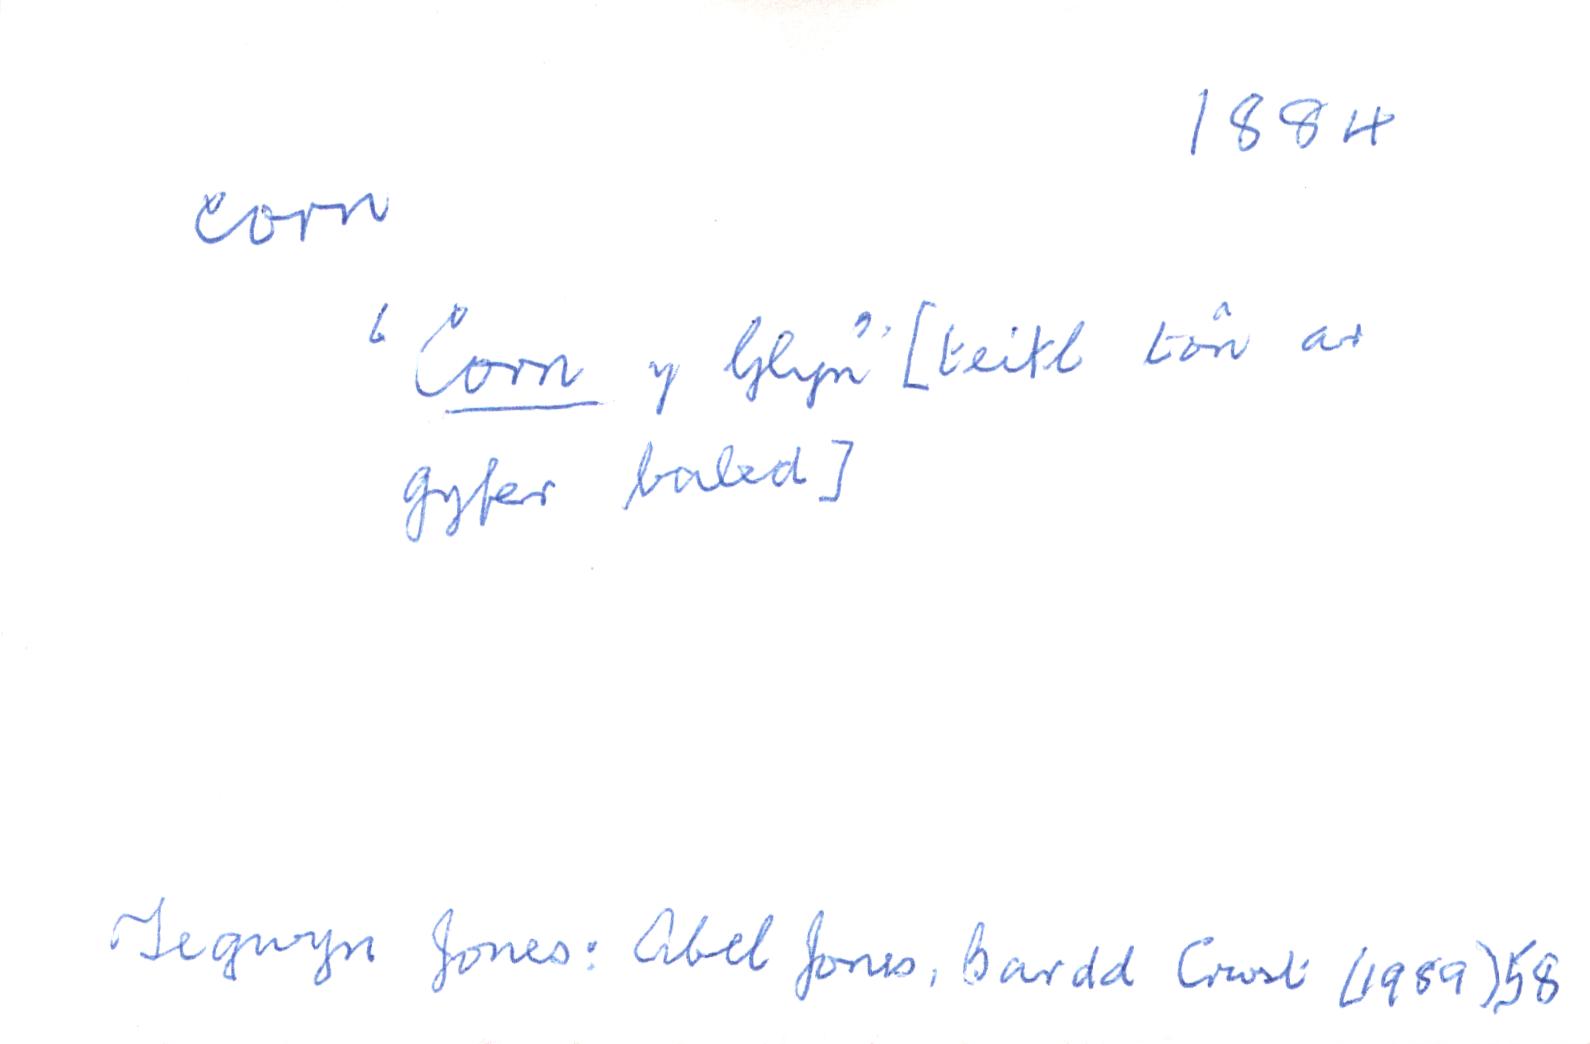 1884
corn
"Corn y Glyn" [teitl tôn ar
gyfer baled]
Tegwyn Jones: Abel Jones, Bardd Crwst (1989) 58